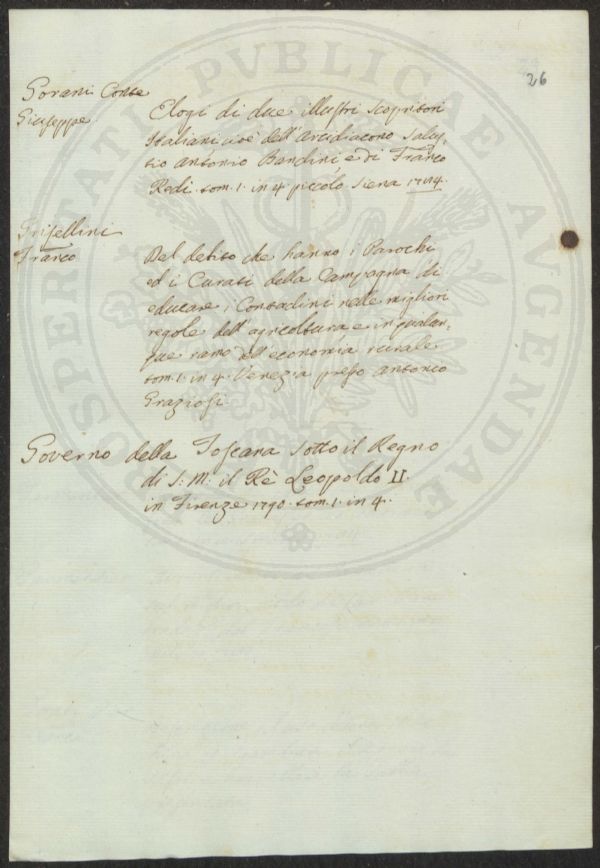 26
Gorani Conte
Giuseppe
Elogi di due illustri scopritori
Italiani cioè dell'Arcidiacono Salus,
tio Antonio Bandini e di Franco
Redi. tom. 1. in 4. piccolo Siena
Grisellini
Franco
Del debito che hanno i Parochi
ed i Curati della Campagna di
educare i Contadini nelle migliori
regole dell'agricoltura e in qualun,
que ramo dell'economia rurale
tom. 1. in 4. Venezia presso Antonio
Graziosi.
Governo della Toscana sotto il Regno
di S. M. il Rè Leopoldo II.
in Firenze 1790. tom. 1. in 4.
PROSPERITATI PVBLICAE AVGENDAE